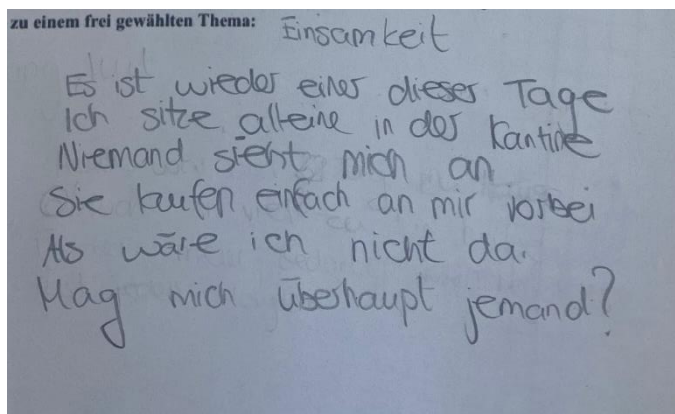 zu einem frei gewählten Thema: Einsamkeit
Es ist wieder einer dieser Tage
Ich sitze alleine in der Kantine
Niemand sieht mich an
Sie laufen einfach an mir vorbei
Als wäre ich nicht da.
Mag mich überhaupt jemand?